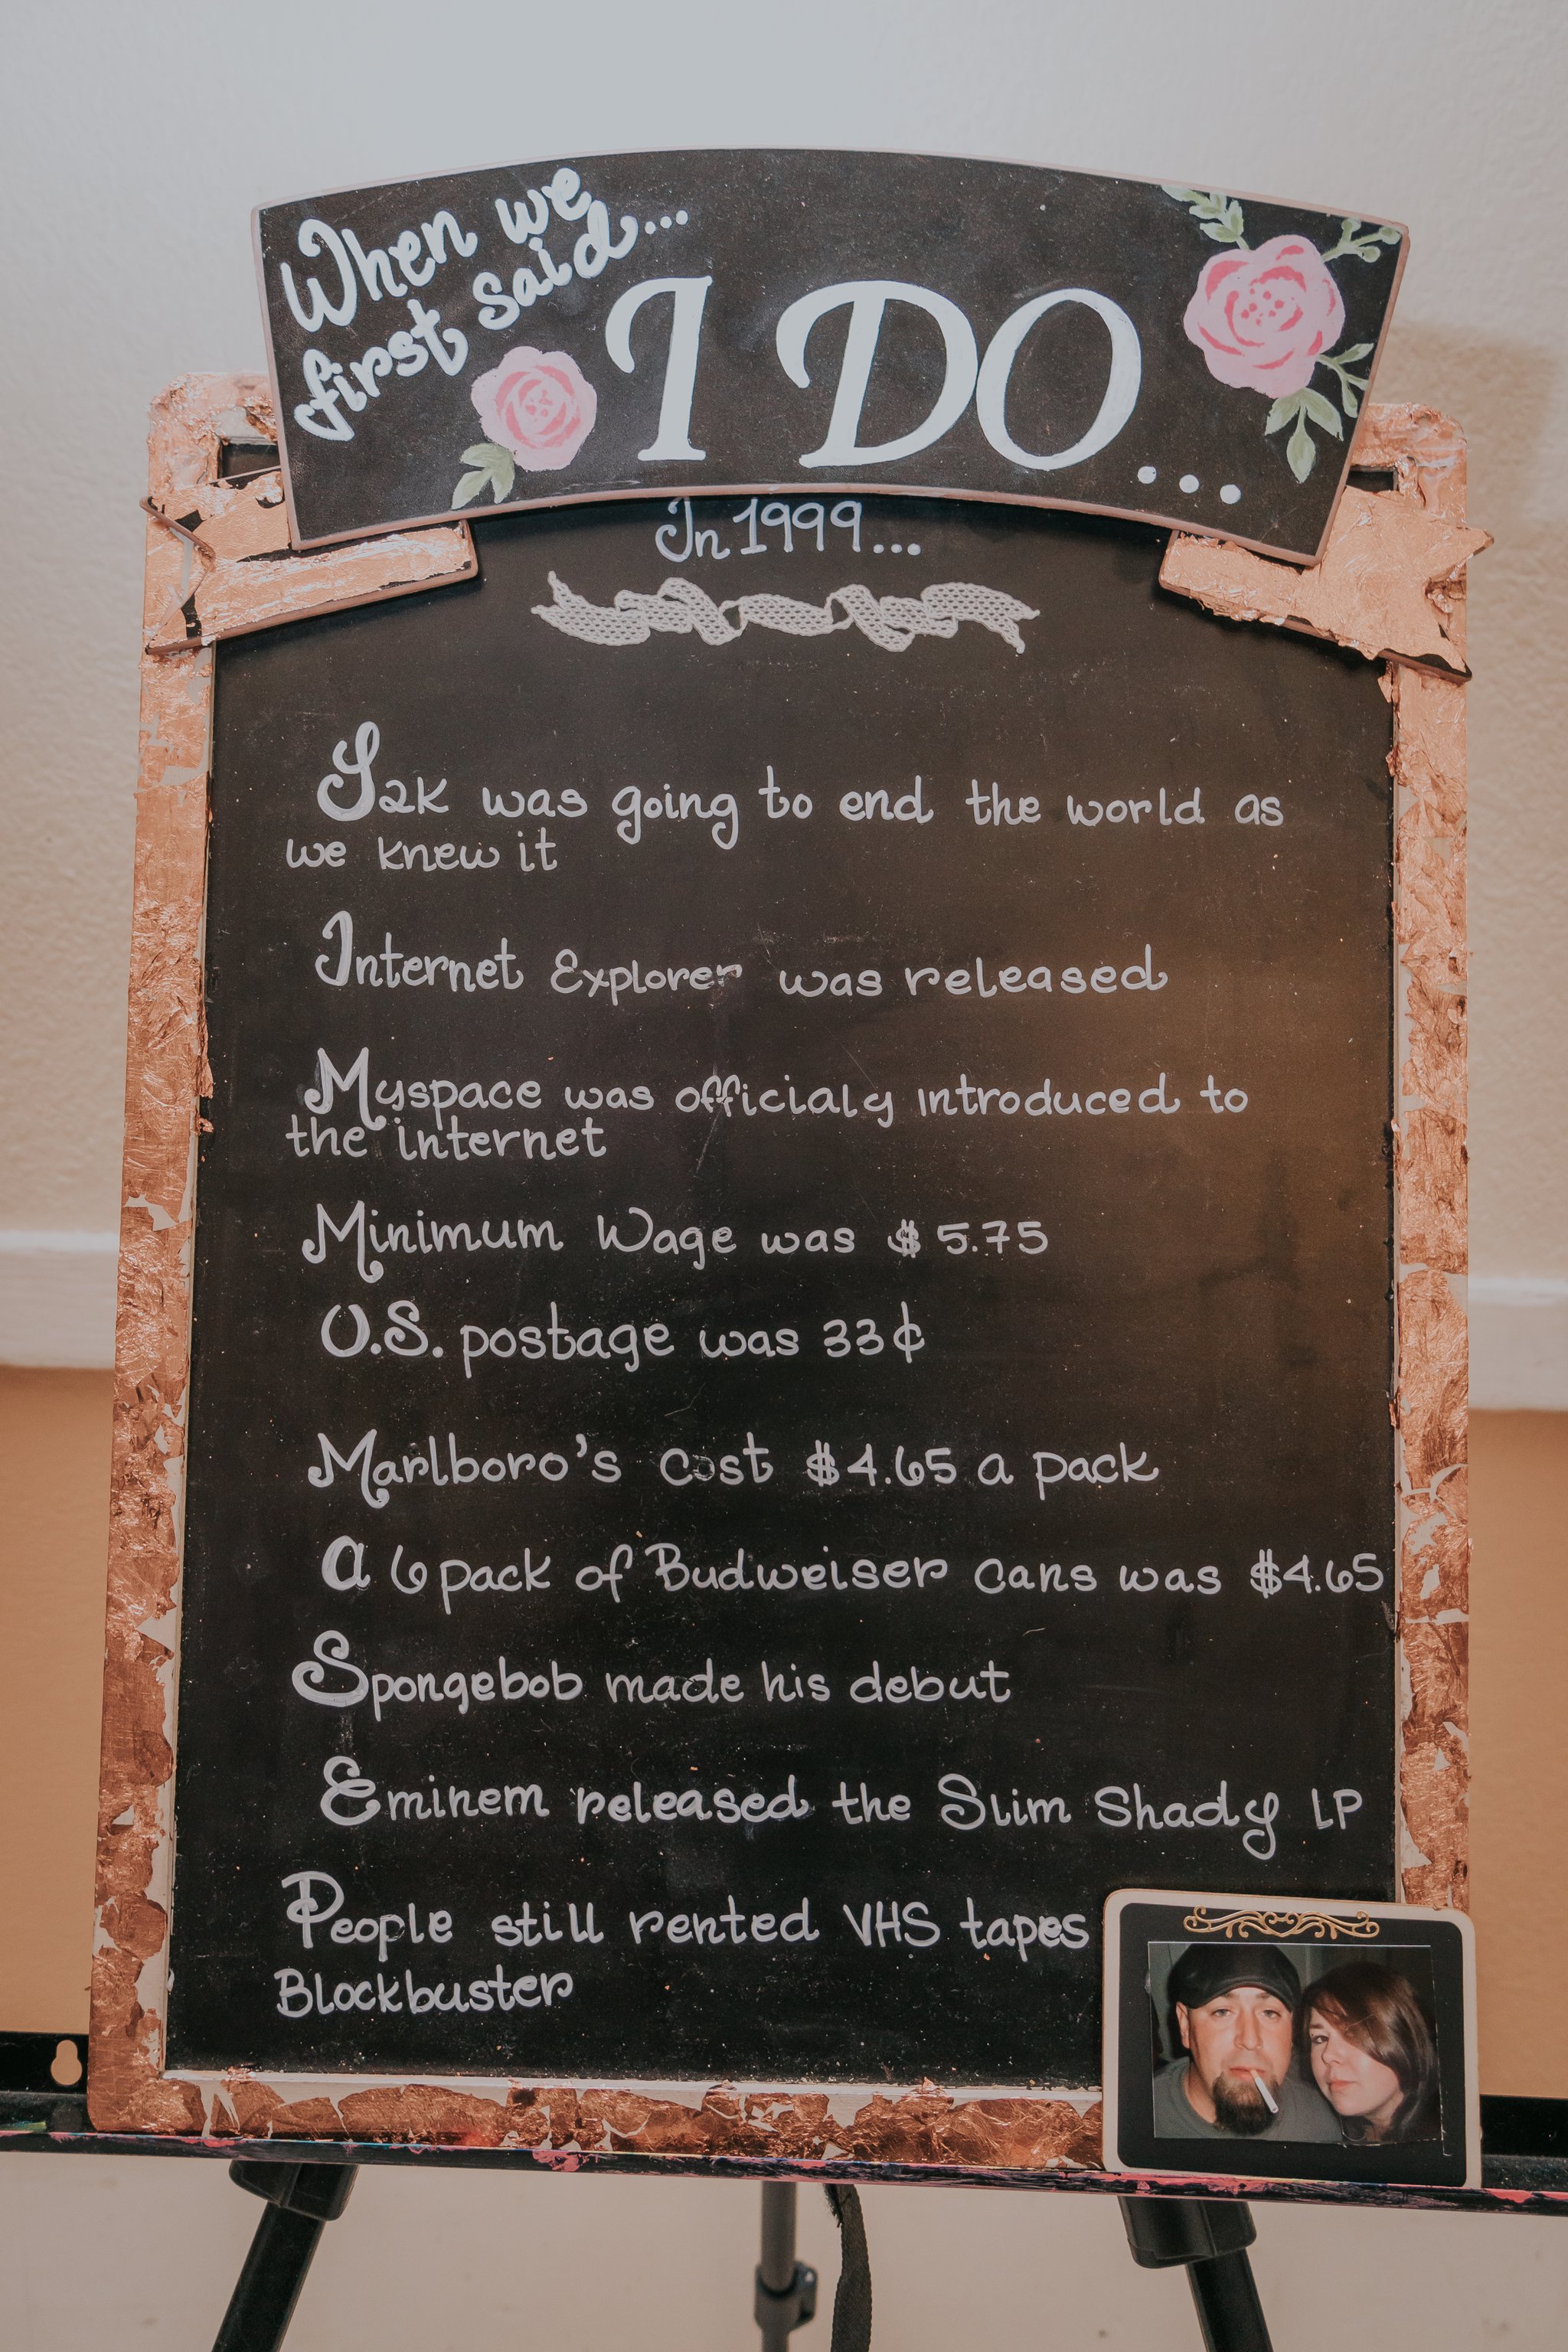 When we
first said...
I DO...
In 1999...
Y2K was going to end the world as
we knew it
Internet Explorer was released
Myspace was officialy introduced to
the internet
Minimum Wage was $5.75
U.S. postage was 33¢
Marlboro's cost $4.65 a pack
a 6 pack of Budweiser cans was $4.65
Spongebob made his debut
Eminem released the Slim Shady LP
People still rented VHS tapes
Blockbuster